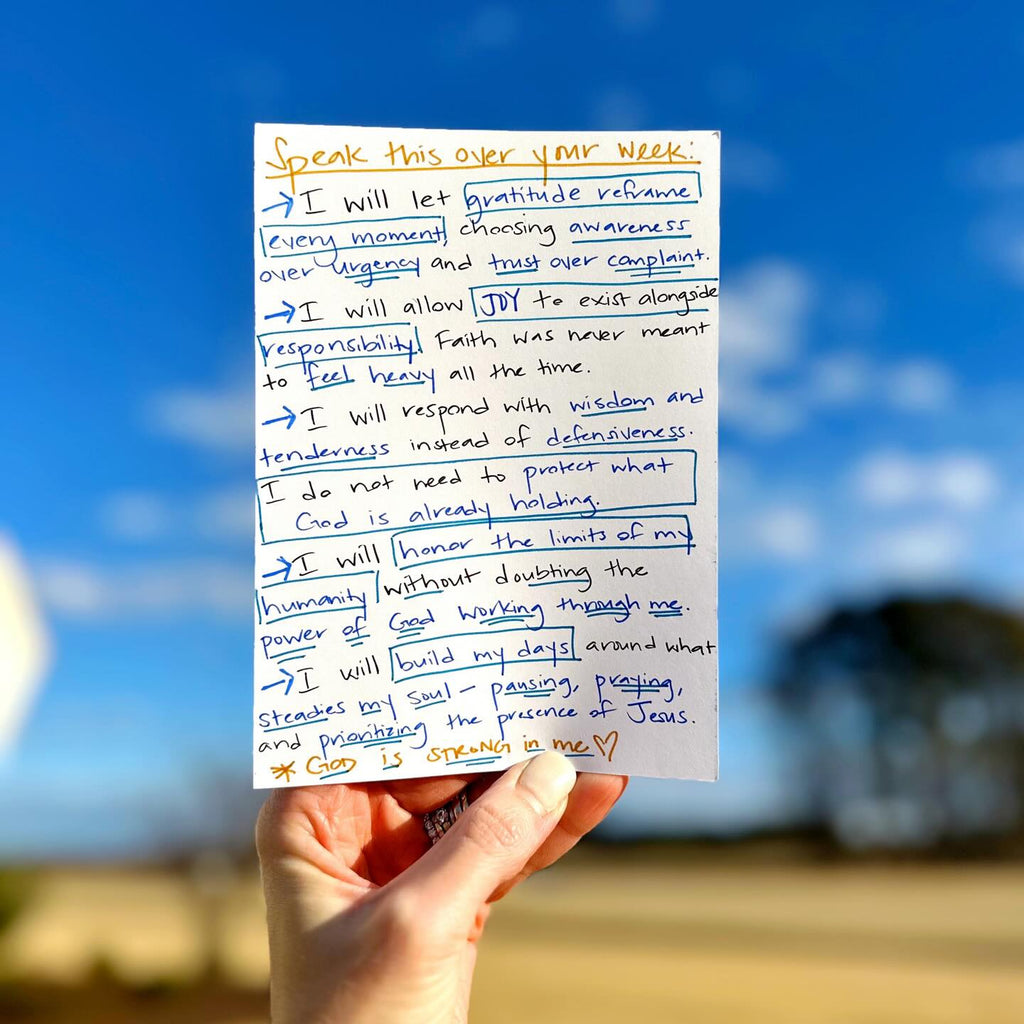 Speak this over your week:
→ I will let gratitude reframe
every moment, choosing awareness
over urgency and trust over complaint.
→ I will allow JOY to exist alongside
responsibility. Faith was never meant
to feel heavy all the time.
→ I will respond with wisdom and
tenderness instead of defensiveness.
I do not need to protect what
God is already holding.
→ I will honor the limits of my
humanity without doubting the
power of God working through me.
→ I will build my days around what
steadies my soul — pausing, praying,
and prioritizing the presence of Jesus.
* GOD is STRONG in me ♡